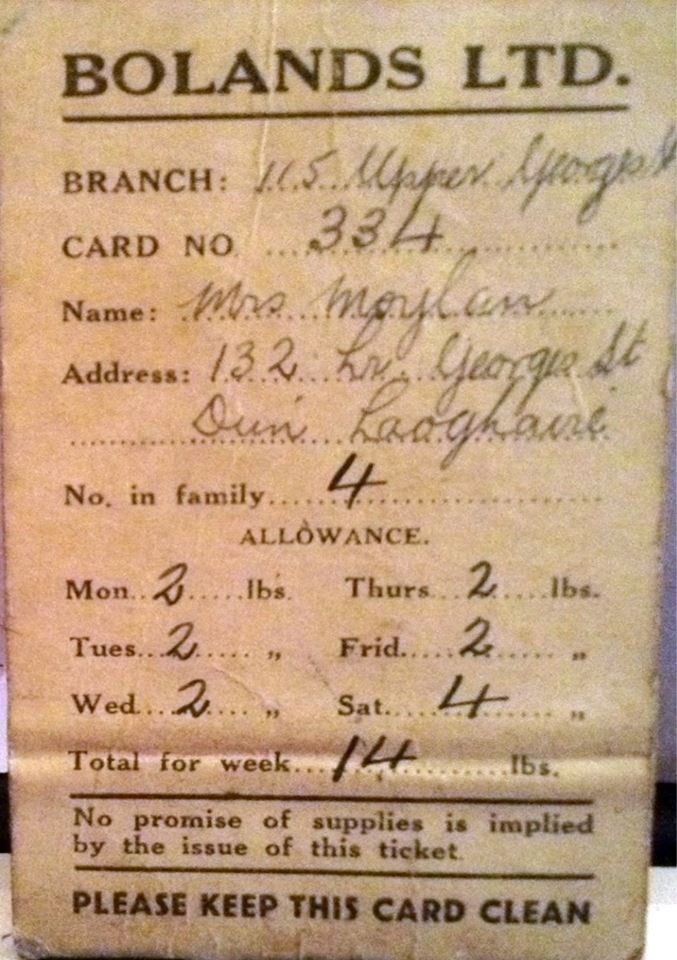 BOLANDS LTD.
BRANCH: 115 Upper Georges St
CARD NO. 334
Name: Mrs Moylan
Address: 132 Lr. Georges St
Dun Laoghaire
No. in family 4
ALLOWANCE.
Mon. 2 lbs. Thurs. 2 lbs.
Tues. 2 „ Frid. 2 „
Wed. 2 „ Sat. 4 „
Total for week 14 lbs.
No promise of supplies is implied
by the issue of this ticket.
PLEASE KEEP THIS CARD CLEAN